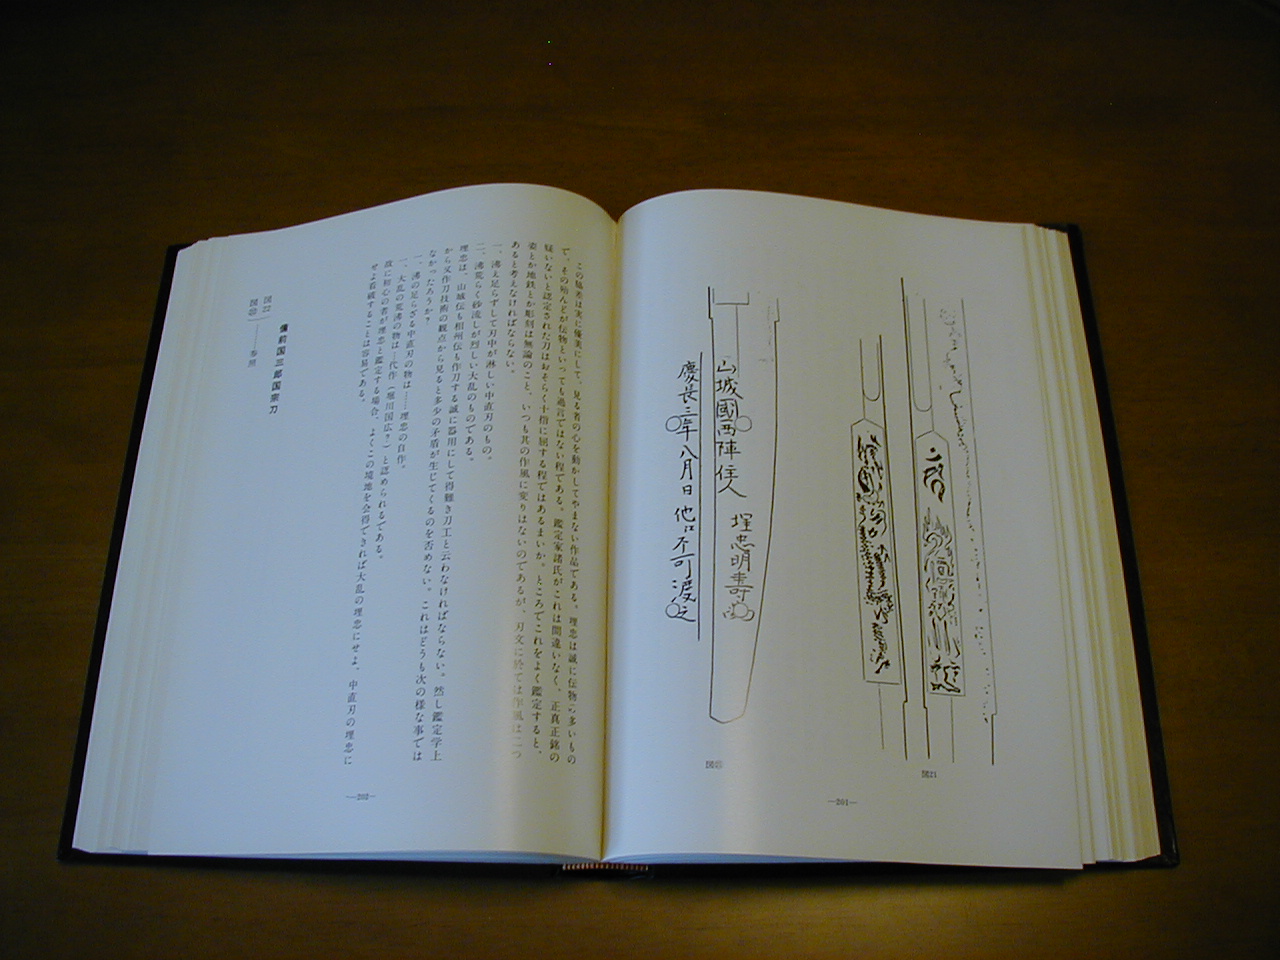 山城國西陣住人 埋忠明壽
慶長三年八月日他江不可渡之
図21
―201―
この脇差は実に優美にして、見る者の心を動かしてやまない作品である。埋忠は誠に伝物の多いもの
で、その殆んどが伝物といっても過言ではない程である。鑑定家諸氏がこれは間違いなく、正真正銘の
疑いないと認定された刀はおそらく十指に屈する程ではあるまいか。ところでこれをよく鑑定すると、
姿とか地鉄とか彫刻は無論のこと、いつも其の作風に変りはないのであるが、刃文に於ては作風は二つ
あると考えなければならない。
一、沸え足らずして刃中が淋しい中直刃のもの。
二、沸荒らく砂流しが烈しい大乱のものである。
埋忠は、山城伝も相州伝も作刀する誠に器用にして得難き刀工と云わなければならない。然し鑑定学上
から又作刀技術の観点から見ると多少の矛盾が生じてくるのを否めない。これはどうも次の様な事では
なかったろうか?
一、沸の足らざる中直刃の物は……埋忠の自作。
一、大乱の荒沸の物は…代作(堀川国広?)と認められるである。
故に初心の者が埋忠と鑑定する場合、よくこの境地を会得できれば大乱の埋忠にせよ、中直刃の埋忠に
せよ看破することは容易である。
備前国三郎国宗刀
図22
参照
―202―